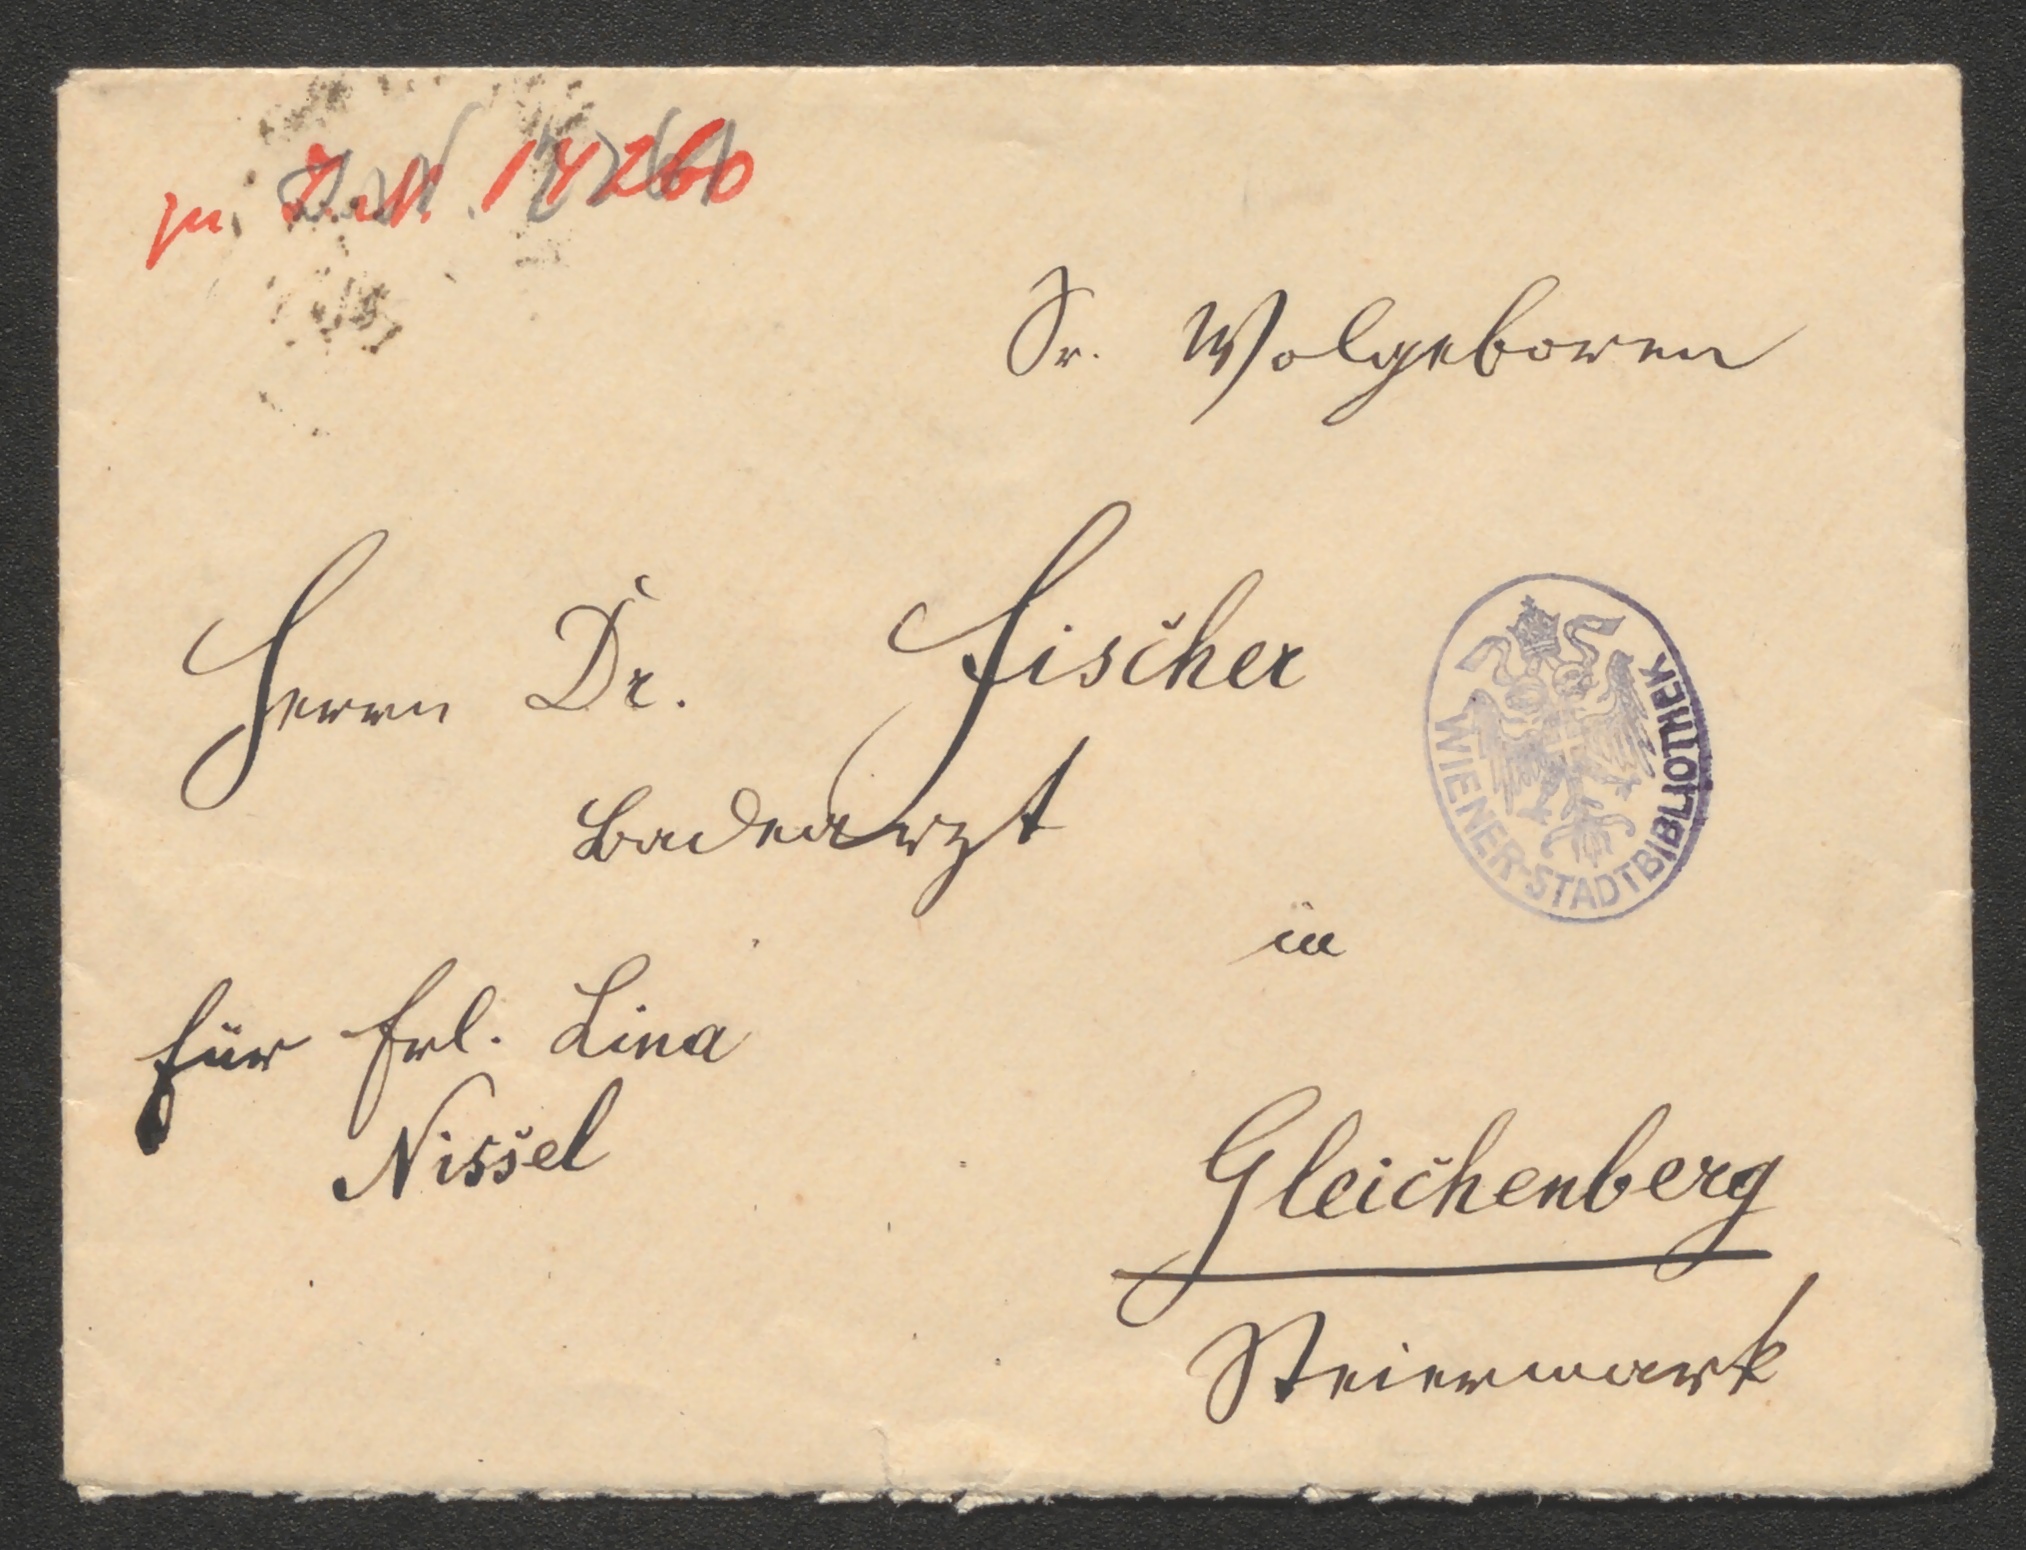 zu
Sr. Wolgeboren
Herrn Dr. Fischer
Badearzt
in
für Frl. Lina
Nissel
Gleichenberg
Steiermark
WIENER-STADTBIBLIOTHEK